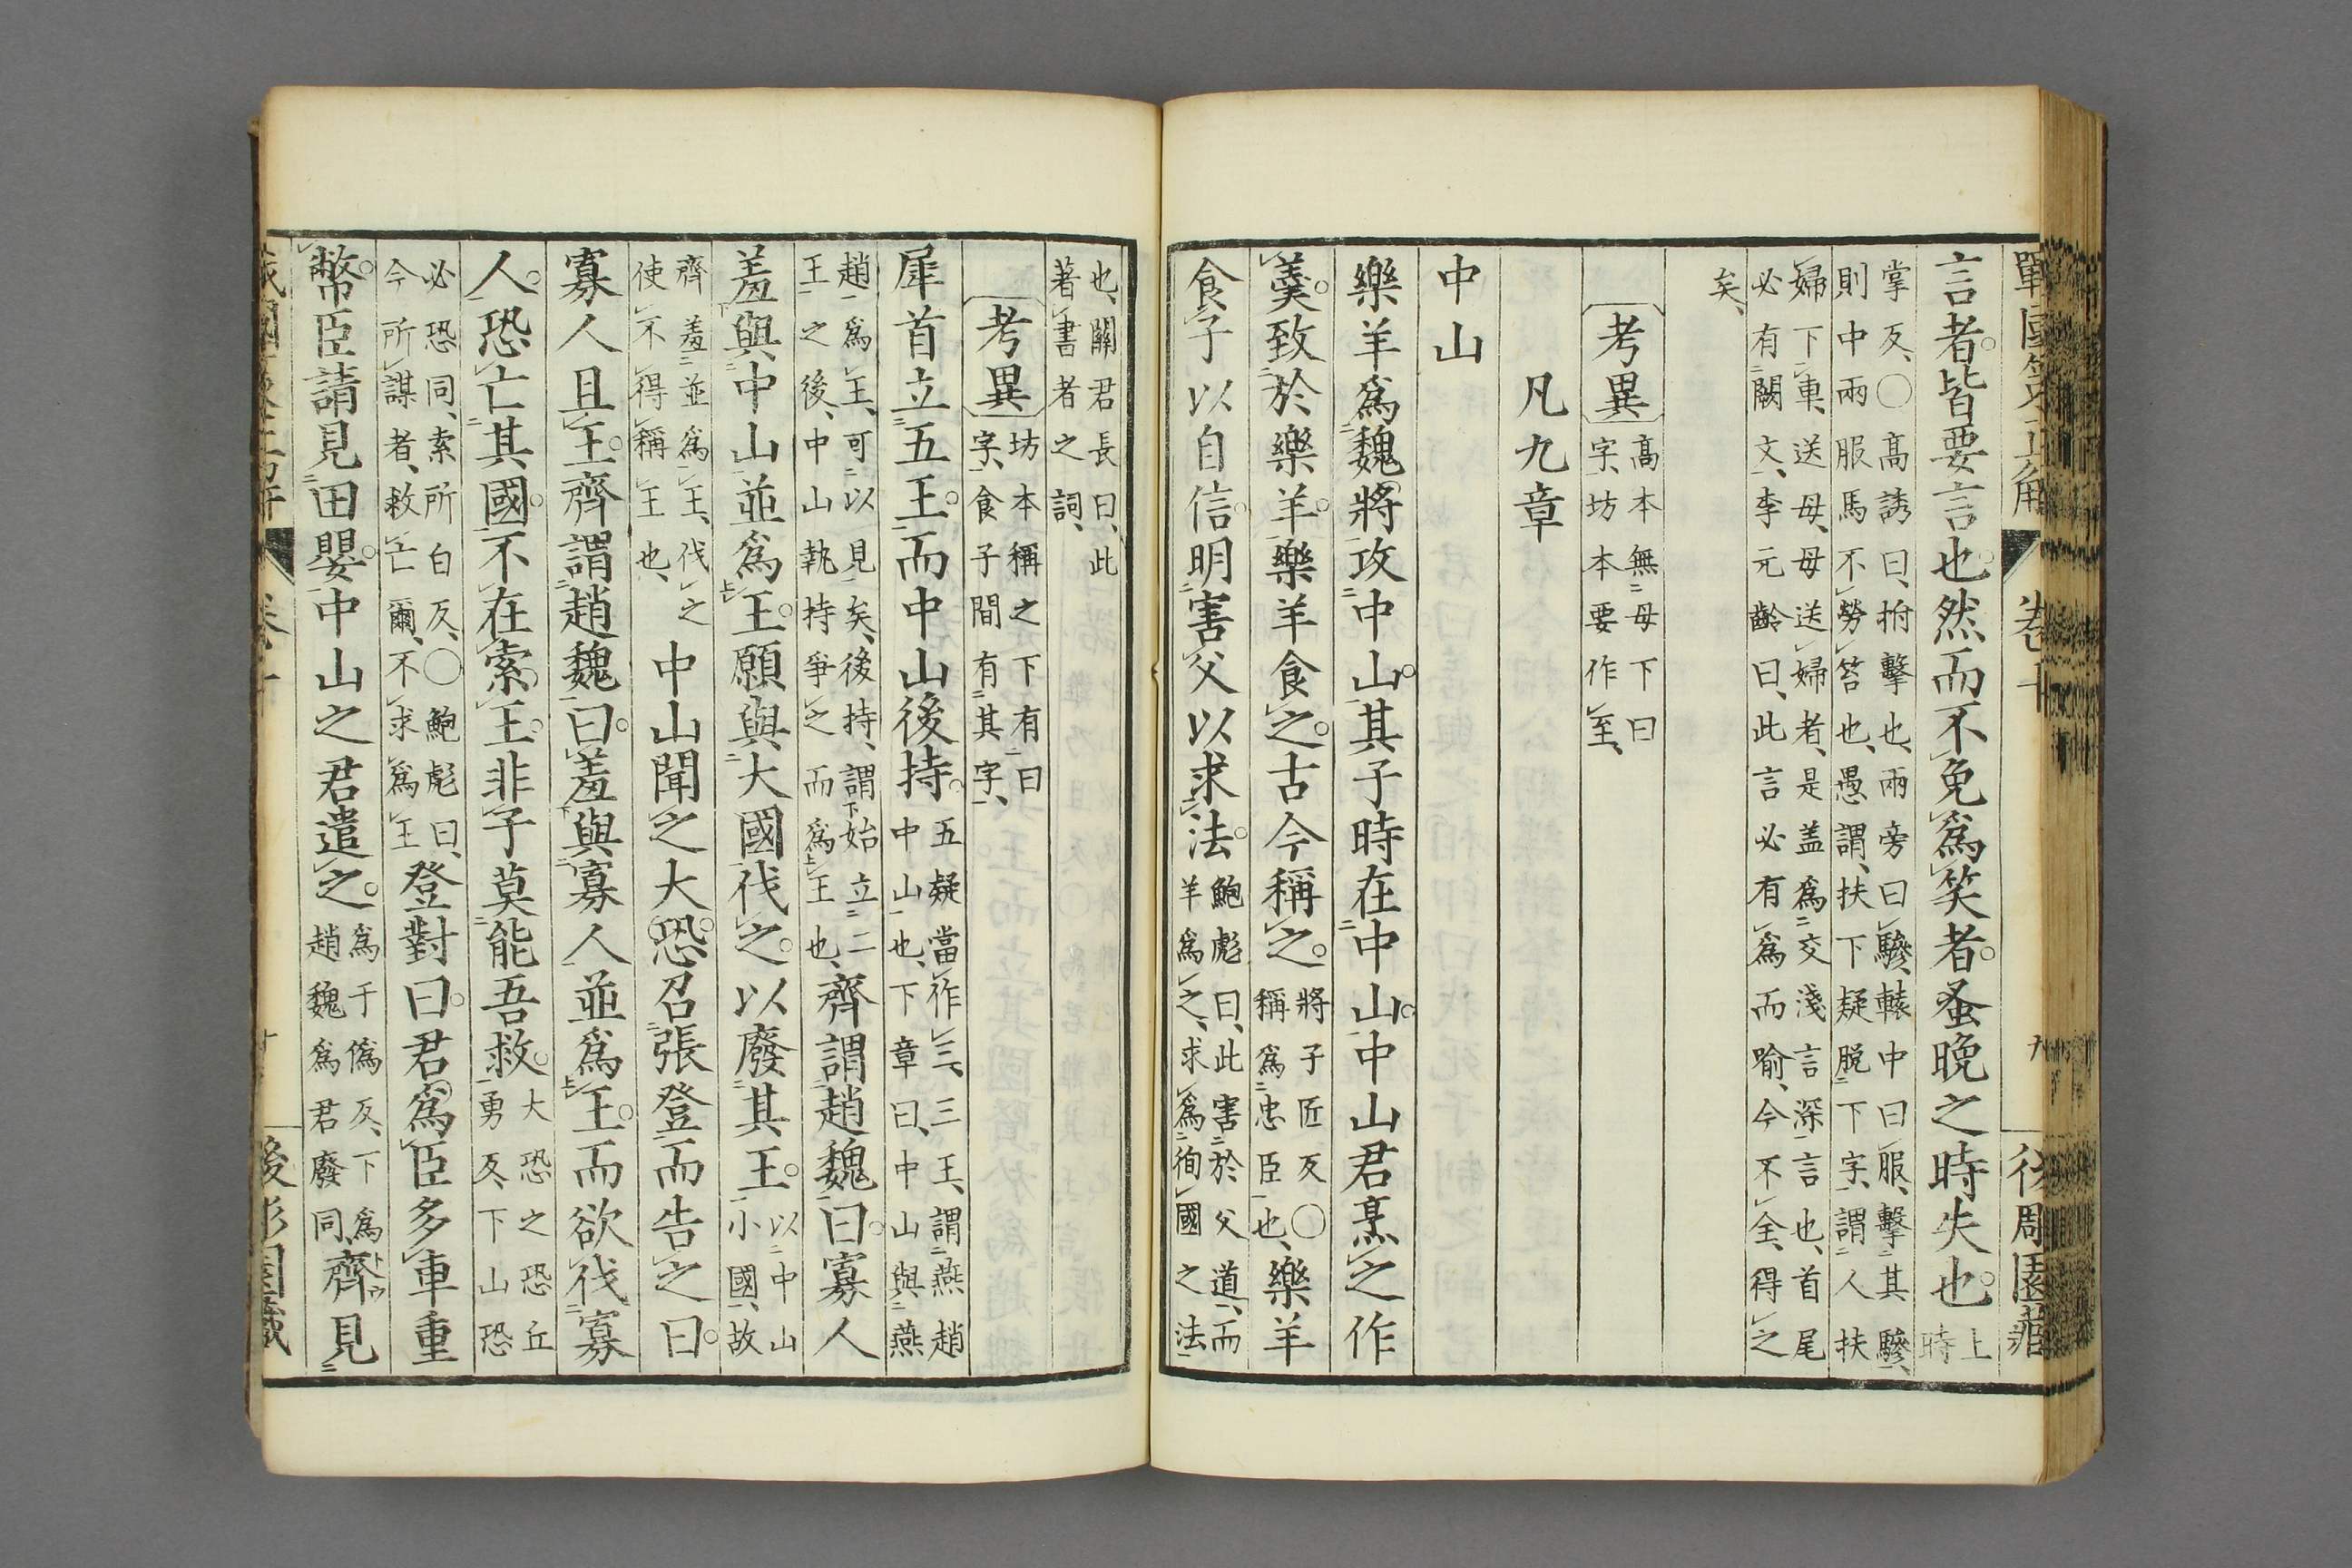 戰國策正解 卷十 九 後周園藏
言者皆要言也然而不免爲笑者蚤晚之時失也 上時
掌反、〇高誘曰、拊擊也、兩旁曰驂、轅中曰服、擊其驂、
則中兩服馬不勞笞也、愚謂、扶下疑脫下字、謂人扶
婦下車、送母、母送婦者、是盖爲交淺言深言也、首尾
必有闕文、李元齡曰、此言必有爲而喻、今不全、得之
矣、
考異 高本無母下曰字、坊本要作至、
凡九章
中山
樂羊爲魏將攻中山其子時在中山中山君烹之作
羹致於樂羊樂羊食之古今稱之 將子匠反〇稱爲忠臣也、 樂羊
食子以自信明害父以求法 鮑彪曰、此害於父道、而羊爲之、求爲徇國之法
也、關君長曰、此
著書者之詞、
考異 坊本稱之下有曰字、食子間有其字、
犀首立五王而中山後持 五疑當作三、三王、謂燕趙中山也、下章曰、中山與燕
趙爲王、可以見矣、後持、謂始立二王之後、中山執持爭之而爲王也、 齊謂趙魏曰寡人
羞與中山並爲王願與大國伐之以廢其王 以中山小國、故
齊羞並爲王、伐之使不得稱王也、 中山聞之大恐召張登而告之曰
寡人且王齊謂趙魏曰羞與寡人並爲王而欲伐寡
人恐亡其國不在索王非子莫能吾救 大恐之恐丘勇反、下山恐
必恐同、索所白反、〇鮑彪曰、今所謀者、救亡爾、不求爲王 登對曰君爲臣多車重
幣臣請見田嬰中山之君遣之 爲于僞反、下爲趙魏爲君廢同、 齊見
卷十